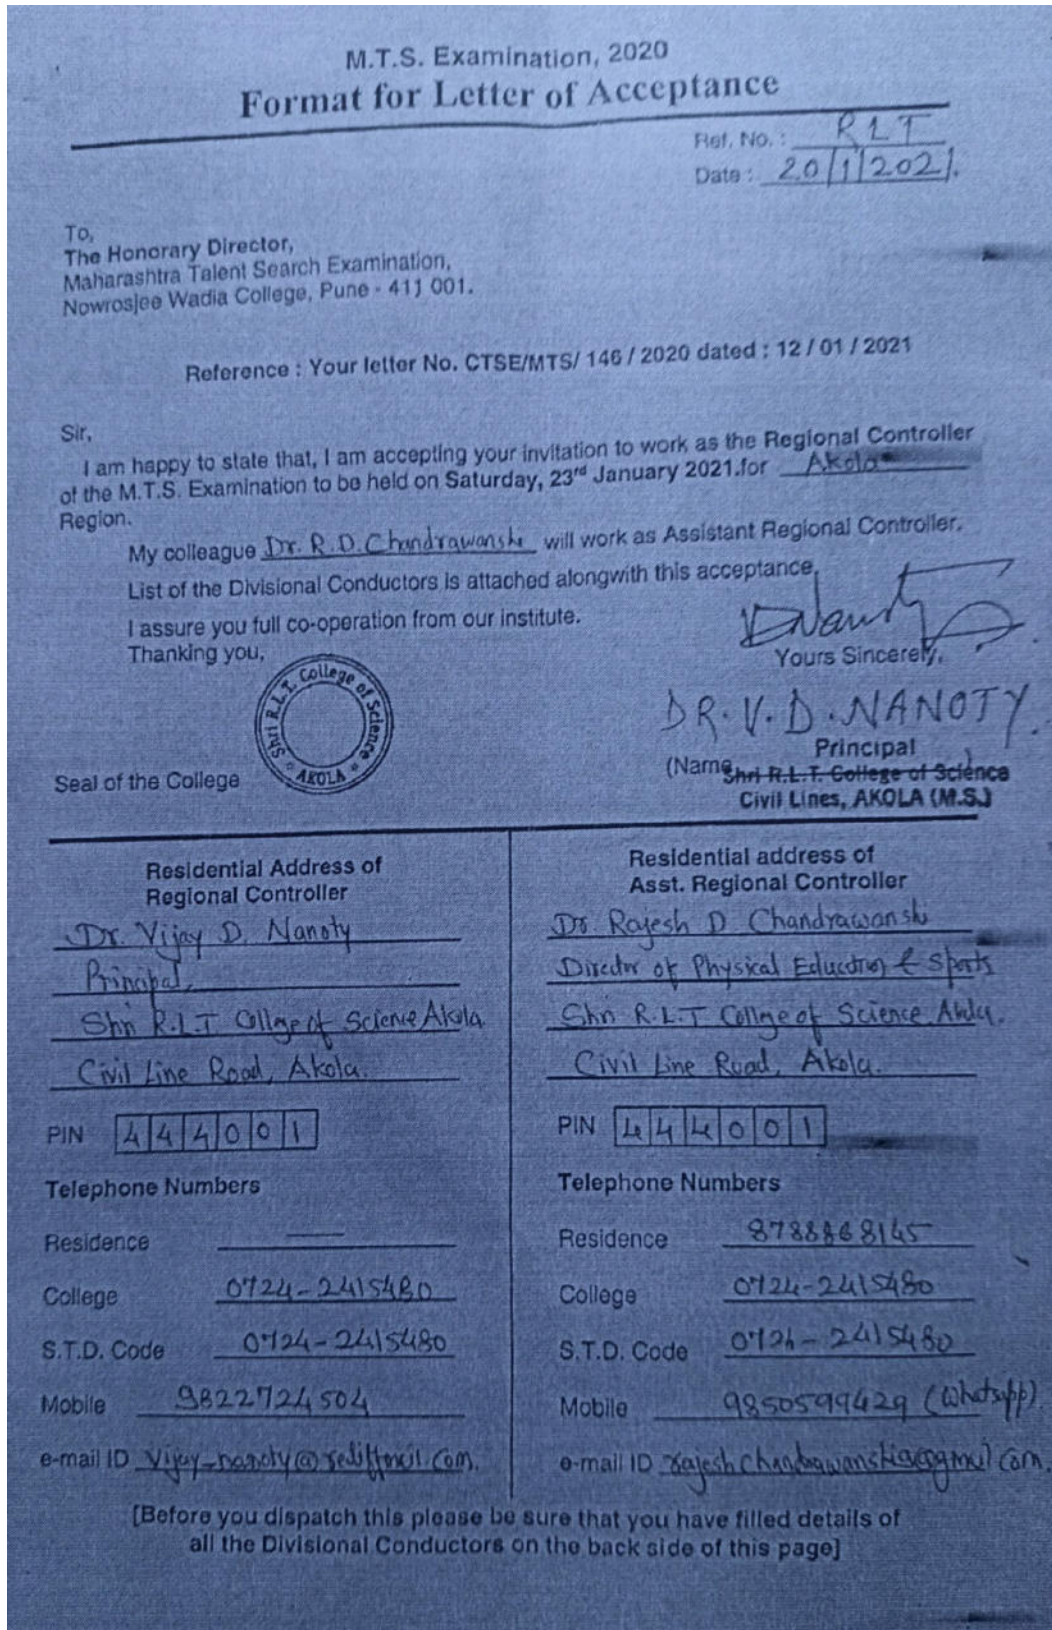 M.T.S. Examination, 2020
Format for Letter of Acceptance
Ref. No. : RLT
Date : 20/1/2021.
To,
The Honorary Director,
Maharashtra Talent Search Examination,
Nowrosjee Wadia College, Pune - 411 001.
Reference : Your letter No. CTSE/MTS/ 146 / 2020 dated : 12 / 01 / 2021
Sir,
I am happy to state that, I am accepting your invitation to work as the Regional Controller
of the M.T.S. Examination to be held on Saturday, 23rd January 2021.for Akola
Region.
My colleague Dr. R.D. Chandrawanshi will work as Assistant Regional Controller.
List of the Divisional Conductors is attached alongwith this acceptance.
I assure you full co-operation from our institute.
Thanking you,
Yours Sincerely,
Shri R.L.T. College of Science
* AKOLA *
DR. V. D. NANOTY
Principal
Seal of the College
(Name
Shri R.L.T. College of Science
Civil Lines, AKOLA (M.S.)
Residential Address of
Regional Controller
Dr. Vijay D. Nanoty
Principal,
Shri R.L.T College of Science Akola.
Civil Line Road, Akola.
PIN 444001
Telephone Numbers
Residence —
College 0724-2415480
S.T.D. Code 0724-2415480
Mobile 9822724504
e-mail ID vijay_nanoty@rediffmail.com.
Residential address of
Asst. Regional Controller
Dr. Rajesh D Chandrawanshi
Director of Physical Education & Sports
Shri R.L.T College of Science, Akola.
Civil Line Road, Akola.
PIN 444001
Telephone Numbers
Residence 8788868145
College 0724-2415480
S.T.D. Code 0724-2415480
Mobile 9850599429 (Whatsapp)
e-mail ID
[Before you dispatch this please be sure that you have filled details of
all the Divisional Conductors on the back side of this page]